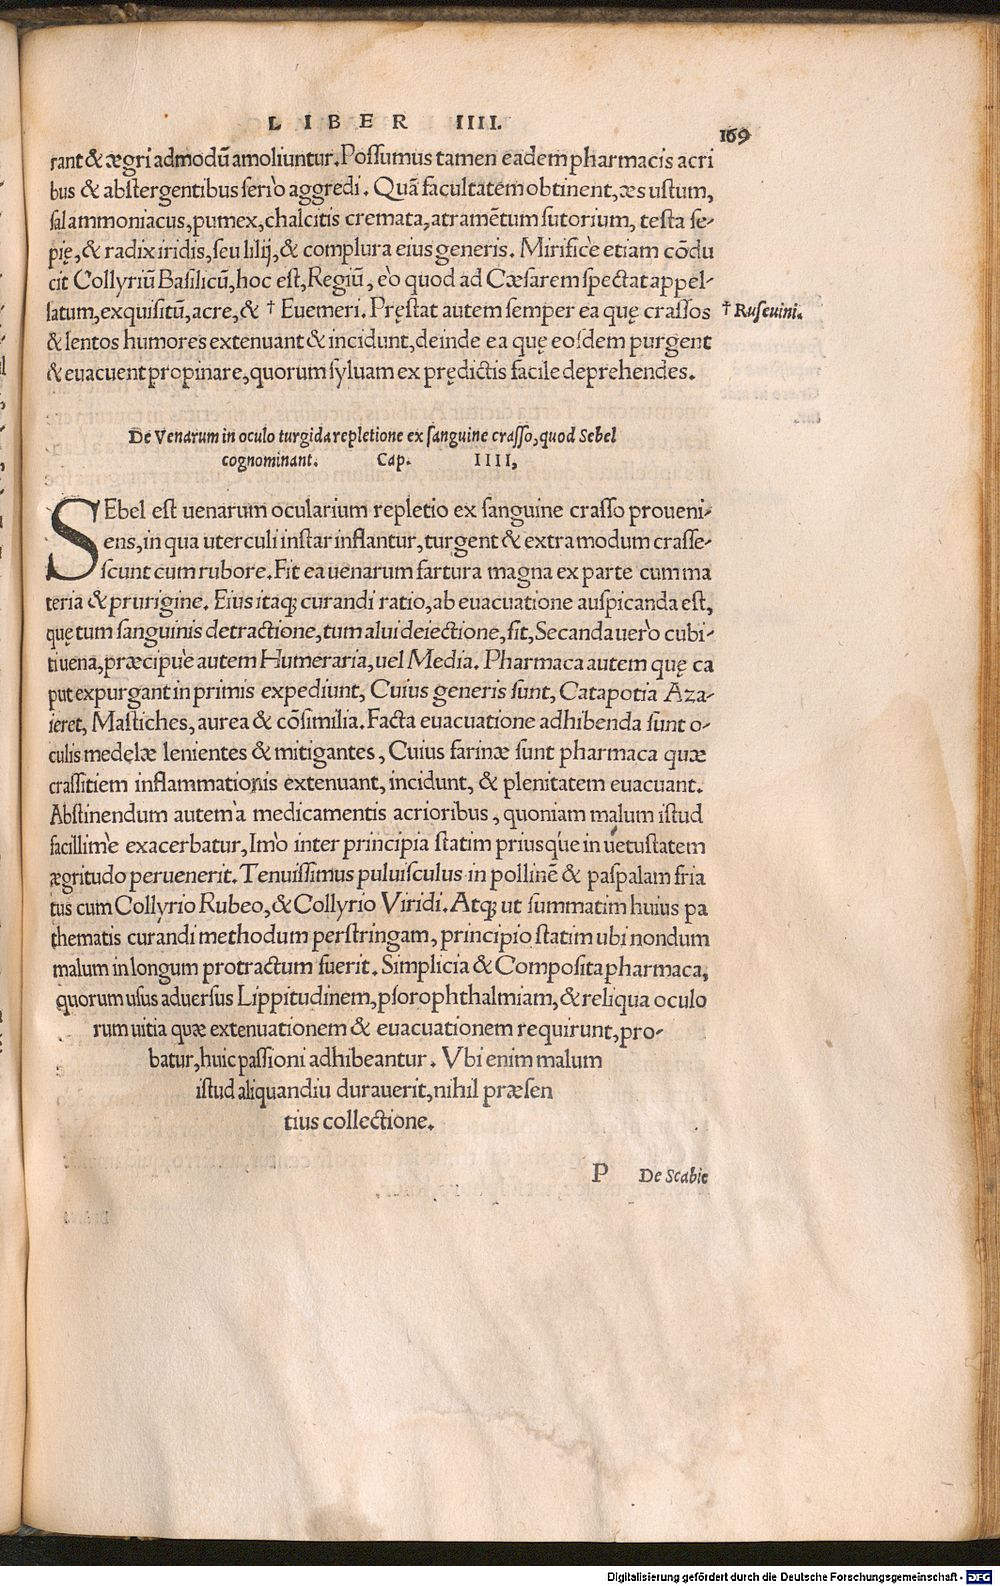 LIBER IIII.
169
rant & ægri admodū amoliuntur. Possumus tamen eadem pharmacis acri
bus & abstergentibus seriò aggredi. Quā facultatem obtinent, æs ustum,
sal ammoniacus, pumex, chalcitis cremata, atramētum sutorium, testa se-
pię, & radix iridis, seu lilij, & complura eius generis. Mirificè etiam cōdu
cit Collyriū Basilicū, hoc est, Regiū, eò quod ad Cæsarem spectat appel-
latum, exquisitū, acre, & † Euemeri. Pręstat autem semper ea quę crassos
† Rufeuini.
& lentos humores extenuant & incidunt, deinde ea quę eosdem purgent
& euacuent propinare, quorum syluam ex prędictis facile deprehendes.
De Venarum in oculo turgida repletione ex sanguine crasso, quod Sebel
cognominant. Cap. IIII,
SEbel est uenarum ocularium repletio ex sanguine crasso proueni-
ens, in qua uterculi instar inflantur, turgent & extra modum crasse-
scunt cum rubore. Fit ea uenarum fartura magna ex parte cum ma
teria & prurigine. Eius itaq; curandi ratio, ab euacuatione auspicanda est,
quę tum sanguinis detractione, tum alui deiectione, fit, Secanda uerò cubi-
ti uena, præcipuè autem Humeraria, uel Media. Pharmaca autem quę ca
put expurgant in primis expediunt, Cuius generis sunt, Catapotia Aza-
ieret, Mastiches, aurea & cōsimilia. Facta euacuatione adhibenda sunt o-
culis medęlæ lenientes & mitigantes, Cuius farinæ sunt pharmaca quæ
crassitiem inflammationis extenuant, incidunt, & plenitatem euacuant.
Abstinendum autem à medicamentis acrioribus, quoniam malum istud
facillimè exacerbatur, Imò inter principia statim priusque in uetustatem
ægritudo peruenerit. Tenuissimus puluisculus in pollinē & paspalam fria
tus cum Collyrio Rubeo, & Collyrio Viridi. Atq; ut summatim huius pa
thematis curandi methodum perstringam, principio statim ubi nondum
malum in longum protractum fuerit. Simplicia & Composita pharmaca,
quorum usus aduersus Lippitudinem, psorophthalmiam, & reliqua oculo
rum uitia quæ extenuationem & euacuationem requirunt, pro-
batur, huic passioni adhibeantur. Vbi enim malum
istud aliquandiu durauerit, nihil præsen
tius collectione.
P De Scabie
Digitalisierung gefördert durch die Deutsche Forschungsgemeinschaft - DFG